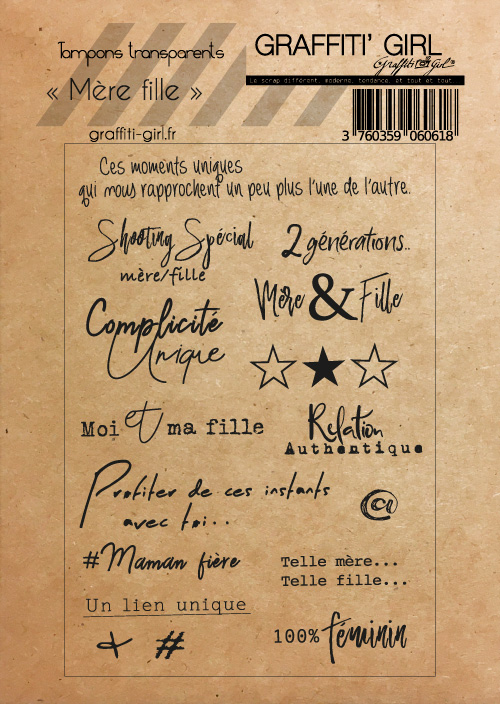 Tampons transparents
« Mère fille »
graffiti-girl.fr
GRAFFITI' GIRL
Graffiti Girl
Le scrap différent, moderne, tendance, et tout et tout.
3 760359 060618
Ces moments uniques
qui nous rapprochent un peu plus l'une de l'autre.
Shooting Spécial
mère/fille
2 générations..
Mère & Fille
Complicité
Unique
Moi et ma fille
Relation
Authentique
Profiter de ces instants
avec toi..
@
#Maman fière
Telle mère...
Telle fille...
Un lien unique
+ #
100% féminin